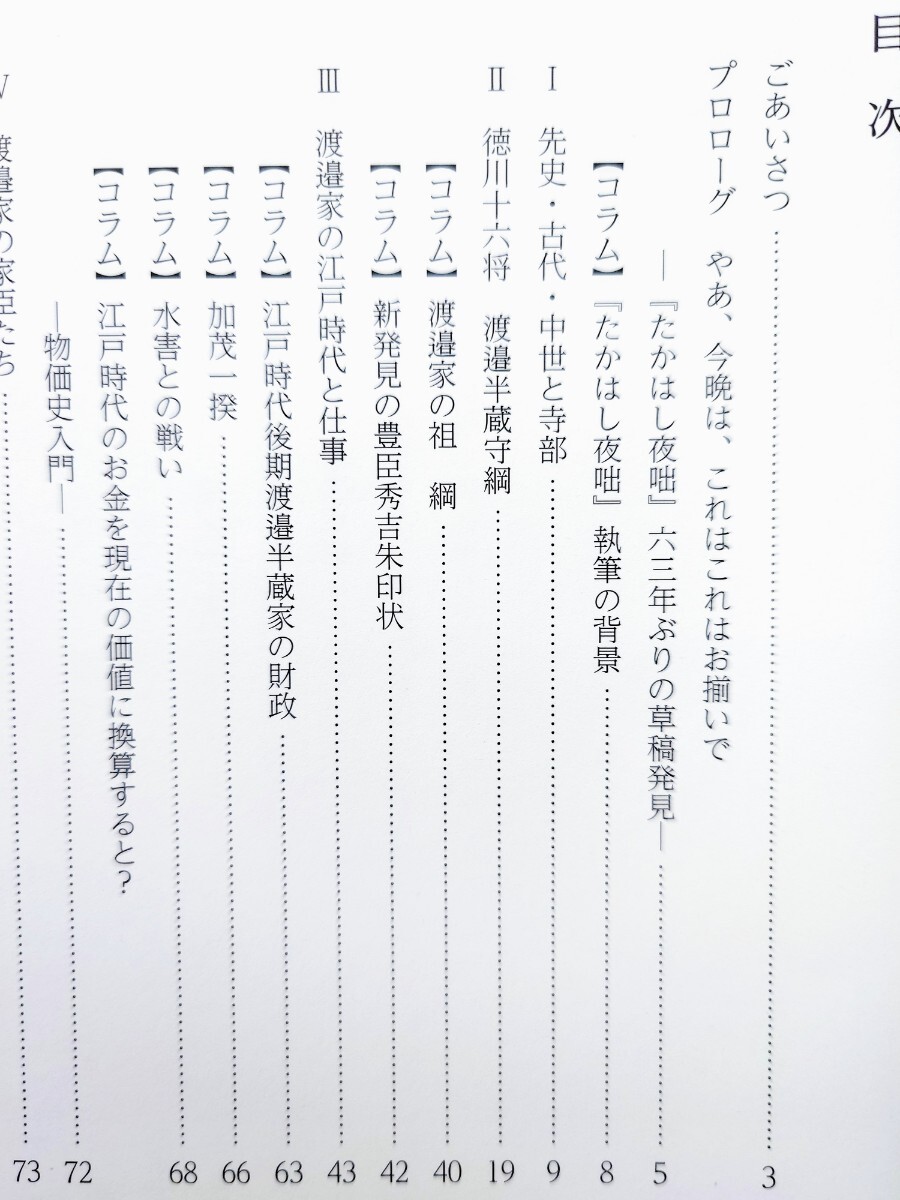 目次
ごあいさつ……3
プロローグ　やあ、今晩は、これはこれはお揃いで
―『たかはし夜咄』六三年ぶりの草稿発見―……5
【コラム】『たかはし夜咄』執筆の背景……8
Ⅰ　先史・古代・中世と寺部……9
Ⅱ　徳川十六将　渡邉半蔵守綱……19
【コラム】渡邉家の祖　綱……40
【コラム】新発見の豊臣秀吉朱印状……42
Ⅲ　渡邉家の江戸時代と仕事……43
【コラム】江戸時代後期渡邉半蔵家の財政……63
【コラム】加茂一揆……66
【コラム】水害との戦い……68
【コラム】江戸時代のお金を現在の価値に換算すると？
―物価史入門―……72
渡邉家の家臣たち……73